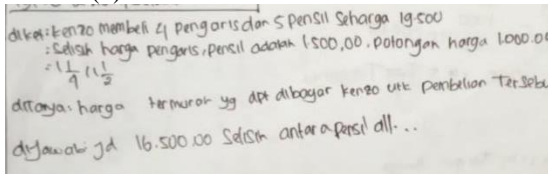 diket: kenzo membeli 4 pengaris dan 5 pensil seharga 19.500
: Selisih harga pengaris, pensil adalah 1.500,00. potongan harga 1.000.00
= 1 1/4 1 1/2
ditanya: harga termurah yg dpt dibayar kenzo utk pembelian Tersebu
dijawab: jd 16.500.00 Selisih antara pensil all...